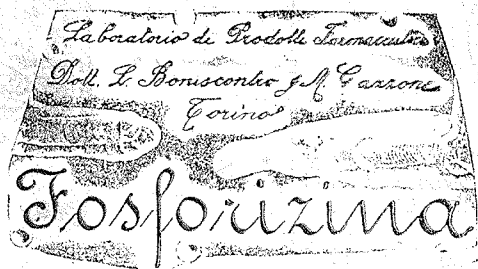 Laboratorio di Prodotti Farmaceutici
Dott. L. Boniscontro & M. Gazzone
Torino
Fosforizina